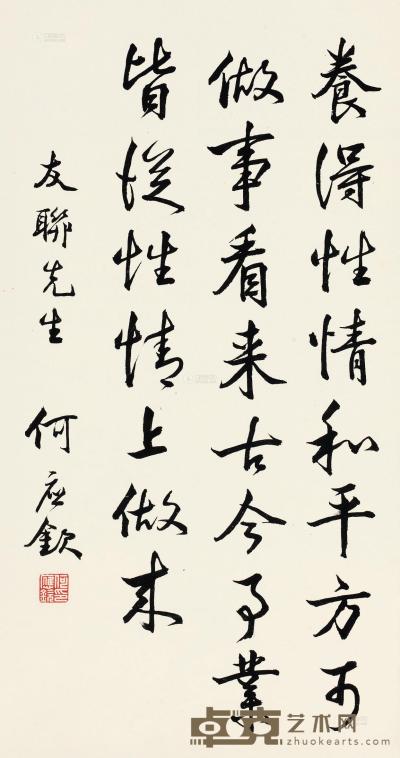 養得性情和平方可
做事看来古今事業
皆從性情上做来
友聯先生
何應欽
卓克艺术网
www.zhuokearts.com